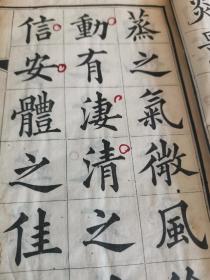 蒸之氣微風
動有淒清之
信安體之佳